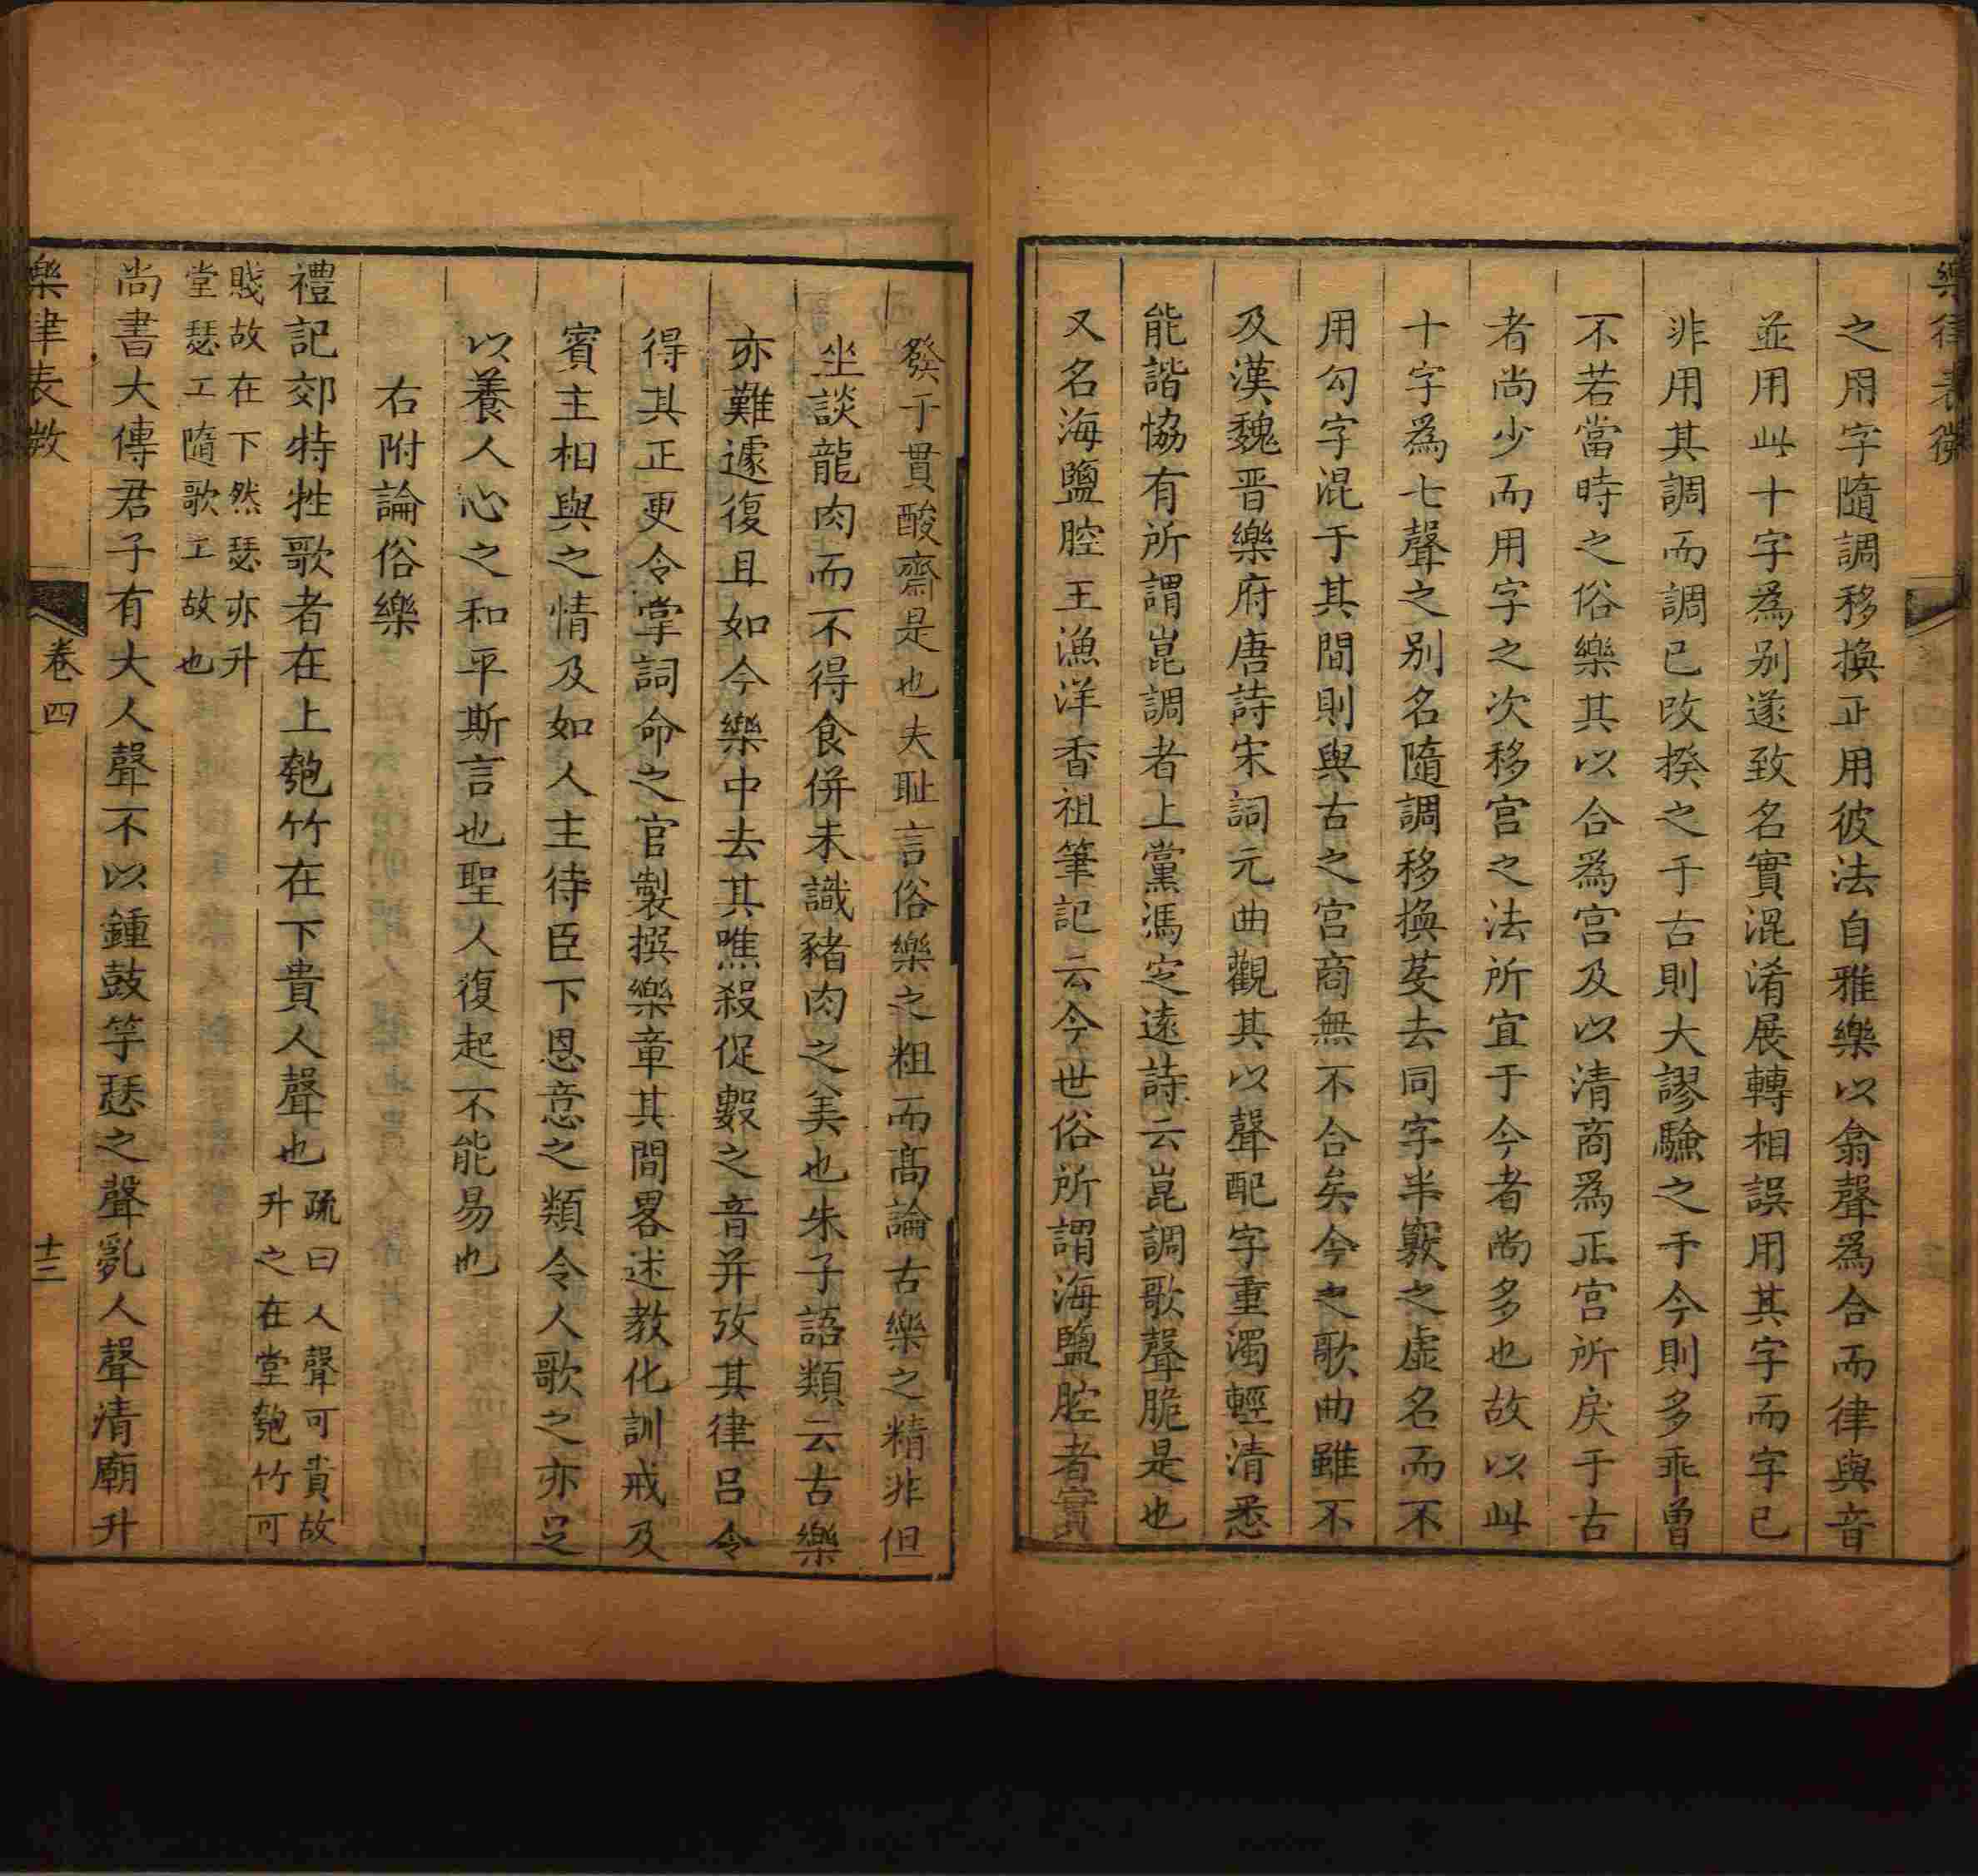 樂律表微
之用字隨調移換正用彼法自雅樂以翕聲爲合而律與音
並用此十字爲别遂致名實混淆展轉相誤用其字而字已
非用其調而調已改揆之于古則大謬驗之于今則多乖曾
不若當時之俗樂其以合爲宫及以清商爲正宫所戾于古
者尚少而用字之次移宫之法所宜于今者尚多也故以此
十字爲七聲之别名隨調移換芟去同字半竅之虚名而不
用勾字混于其間則與古之宫商無不合矣今之歌曲雖不
及漢魏晋樂府唐詩宋詞元曲觀其以聲配字重濁輕清悉
能諧協有所謂崑調者上黨馮定遠詩云崑調歌聲脆是也
又名海鹽腔王漁洋香祖筆記云今世俗所謂海鹽腔者實
發于貫酸齋是也夫耻言俗樂之粗而高論古樂之精非但
坐談龍肉而不得食併未識豬肉之美也朱子語類云古樂
亦難遽復且如今樂中去其噍殺促數之音并攷其律吕令
得其正更令掌詞命之官製撰樂章其間畧述教化訓戒及
賓主相與之情及如人主待臣下恩意之類令人歌之亦足
以養人心之和平斯言也聖人復起不能易也
右附論俗樂
禮記郊特牲歌者在上匏竹在下貴人聲也
疏曰人聲可貴故
升之在堂匏竹可
賤故在下然瑟亦升
堂瑟工隨歌工故也
尚書大傳君子有大人聲不以鍾鼓竽瑟之聲亂人聲清廟升
樂律表微
卷四
十三